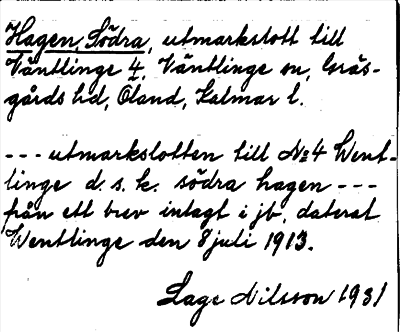 Hagen, Södra, utmarkslott till
Väntlinge 4, Väntlinge sn, Gräs-
gårds hd, Öland, Kalmar l.
--- utmarkslotten till No 4 Went-
linge d. s. k. södra hagen ---
från ett brev inlagt i jb, daterat
Wentlinge den 8 juli 1913.
Lage Nilsson 1931